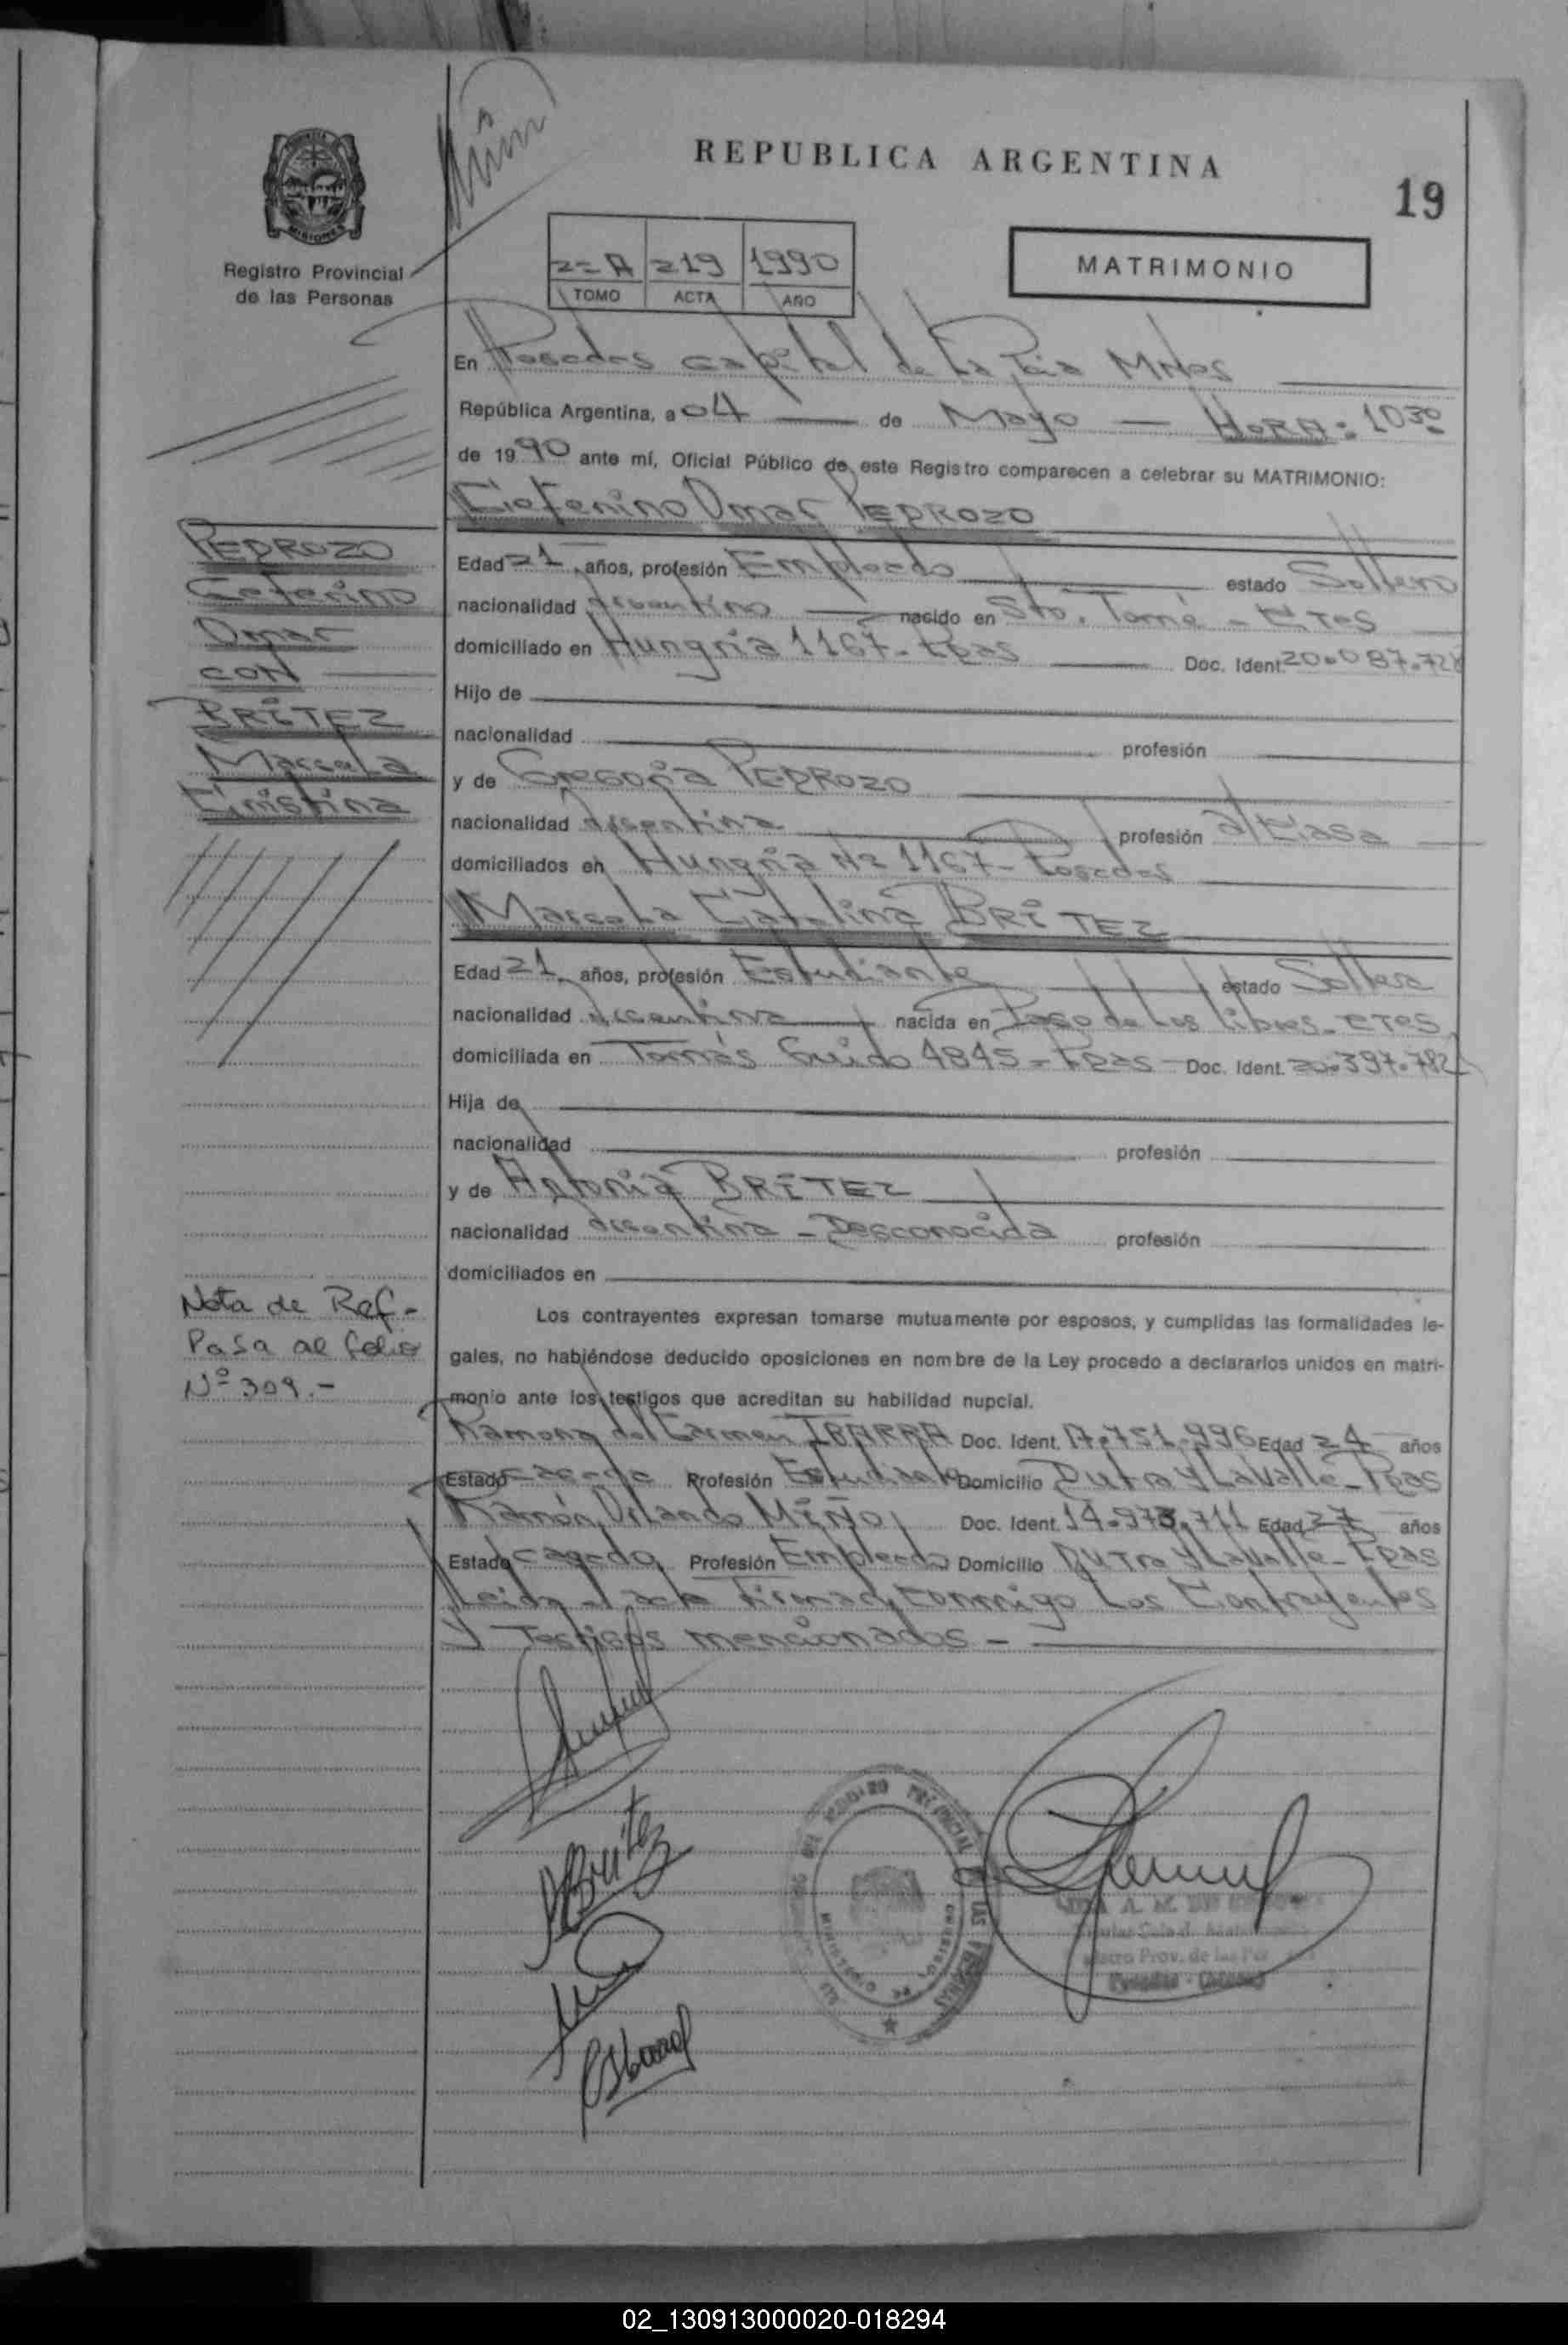 REPUBLICA ARGENTINA
19
MISIONES
Registro Provincial
de las Personas
2=A 219 1990
TOMO ACTA AÑO
MATRIMONIO
En Posadas Capital de La Pcia Mnes
República Argentina, a 04 de Mayo - HORA: 10 30
de 1990 ante mí, Oficial Público de este Registro comparecen a celebrar su MATRIMONIO:
Ceferino Omar PEDROZO
PEDROZO
Ceferino
Omar
CON
BRITEZ
Marcela
Cristina
Edad 21 años, profesión Empleado estado Soltero
nacionalidad Argentino nacido en Sto. Tomé - CTES
domiciliado en Hungria 1167 - Pdas Doc. Ident. 20.087.728
Hijo de
nacionalidad profesión
y de Gregoria PEDROZO
nacionalidad Argentina profesión
domiciliados en Hungria Nº 1167 - Posadas
Marcela Catalina BRITEZ
Edad 21 años, profesión Estudiante estado Soltera
nacionalidad Argentina nacida en Paso de Los Libres - CTES
domiciliada en Tomás Guido 4845 - Pdas - Doc. Ident. 20.397.782
Hija de
nacionalidad profesión
y de Antonia BRITEZ
nacionalidad Argentina - Desconocida profesión
domiciliados en
Nota de Ref -
Pasa al folio
Nº 309.-
Los contrayentes expresan tomarse mutuamente por esposos, y cumplidas las formalidades le-
gales, no habiéndose deducido oposiciones en nombre de la Ley procedo a declararlos unidos en matri-
monio ante los testigos que acreditan su habilidad nupcial.
Ramona del Carmen IBARRA Doc. Ident. 17.751.996 Edad 24 años
Estado casada Profesión Estudiante Domicilio Dutra y Lavalle - Pdas
Ramón Orlando MIÑO Doc. Ident. 14.973.711 Edad 27 años
Estado casado Profesión Empleado Domicilio Dutra y Lavalle - Pdas
Leida el acta Firman conmigo Los Contrayentes
y Testigos mencionados -
Britez
02_130913000020-018294